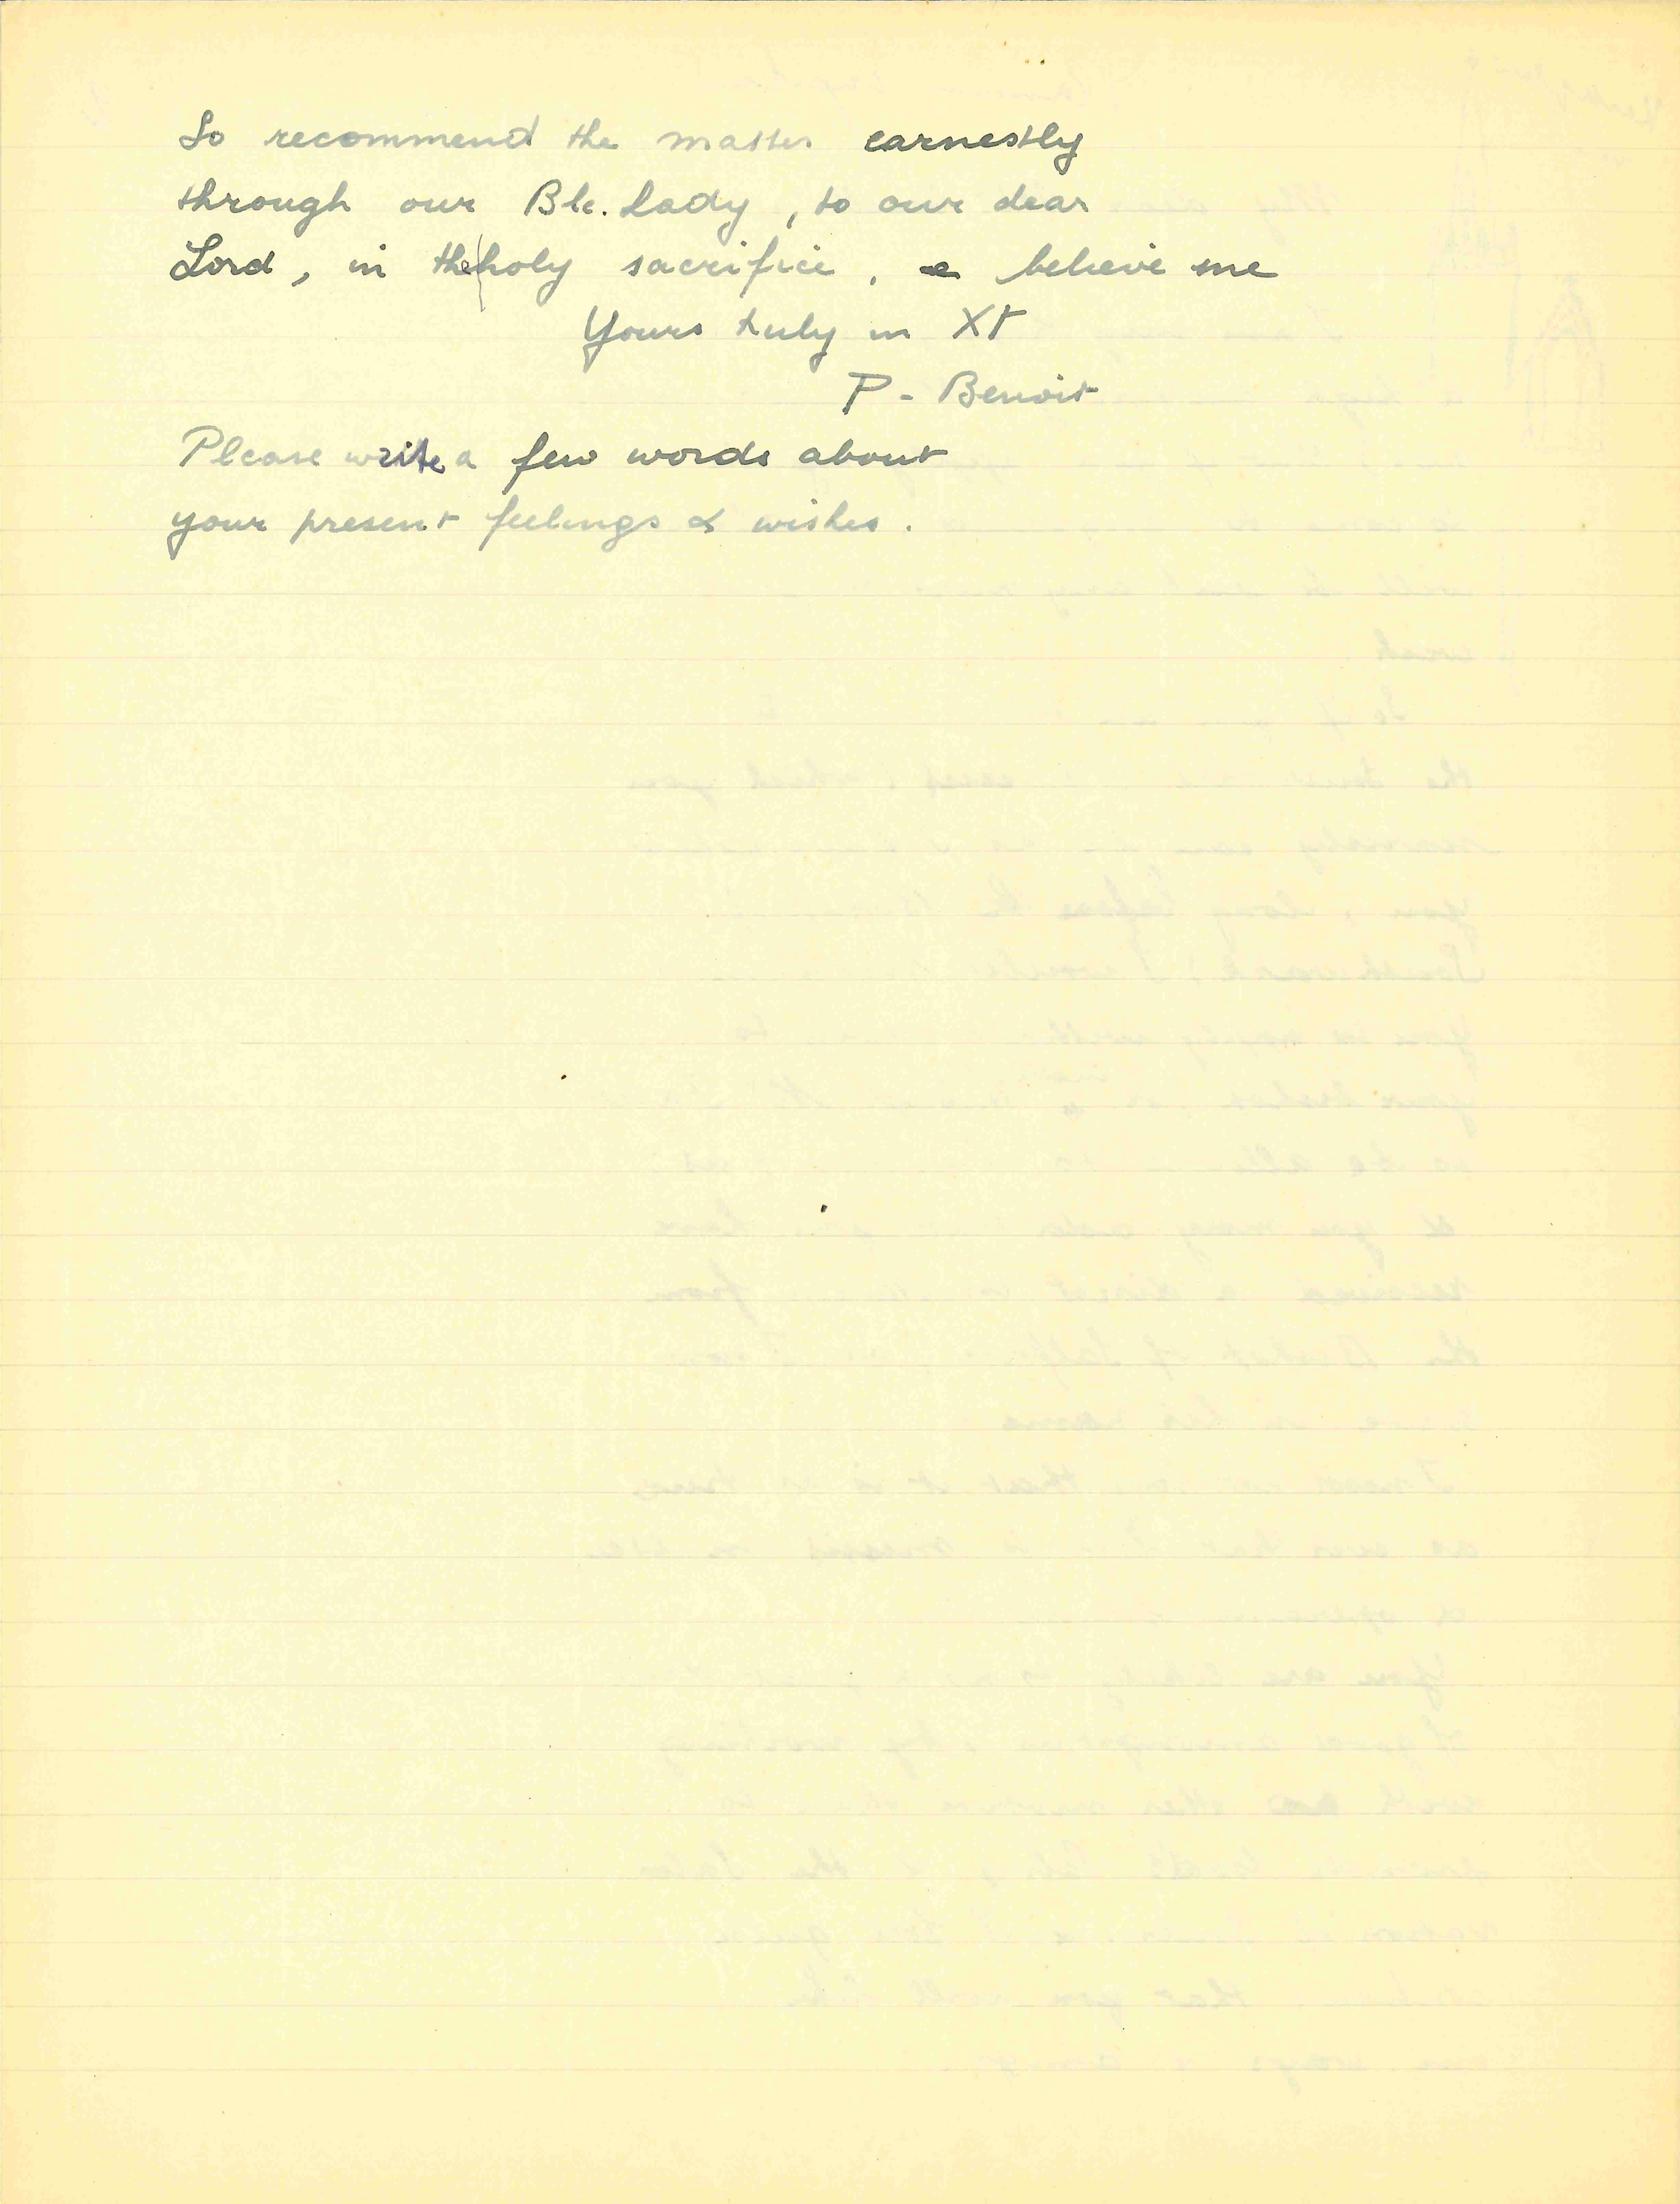 So recommend the matter earnestly
through our Ble. Lady, to our dear
Lord, in the holy sacrifice, & believe me
Yours truly in XT
P - Benoit
Please write a few words about
your present feelings & wishes.